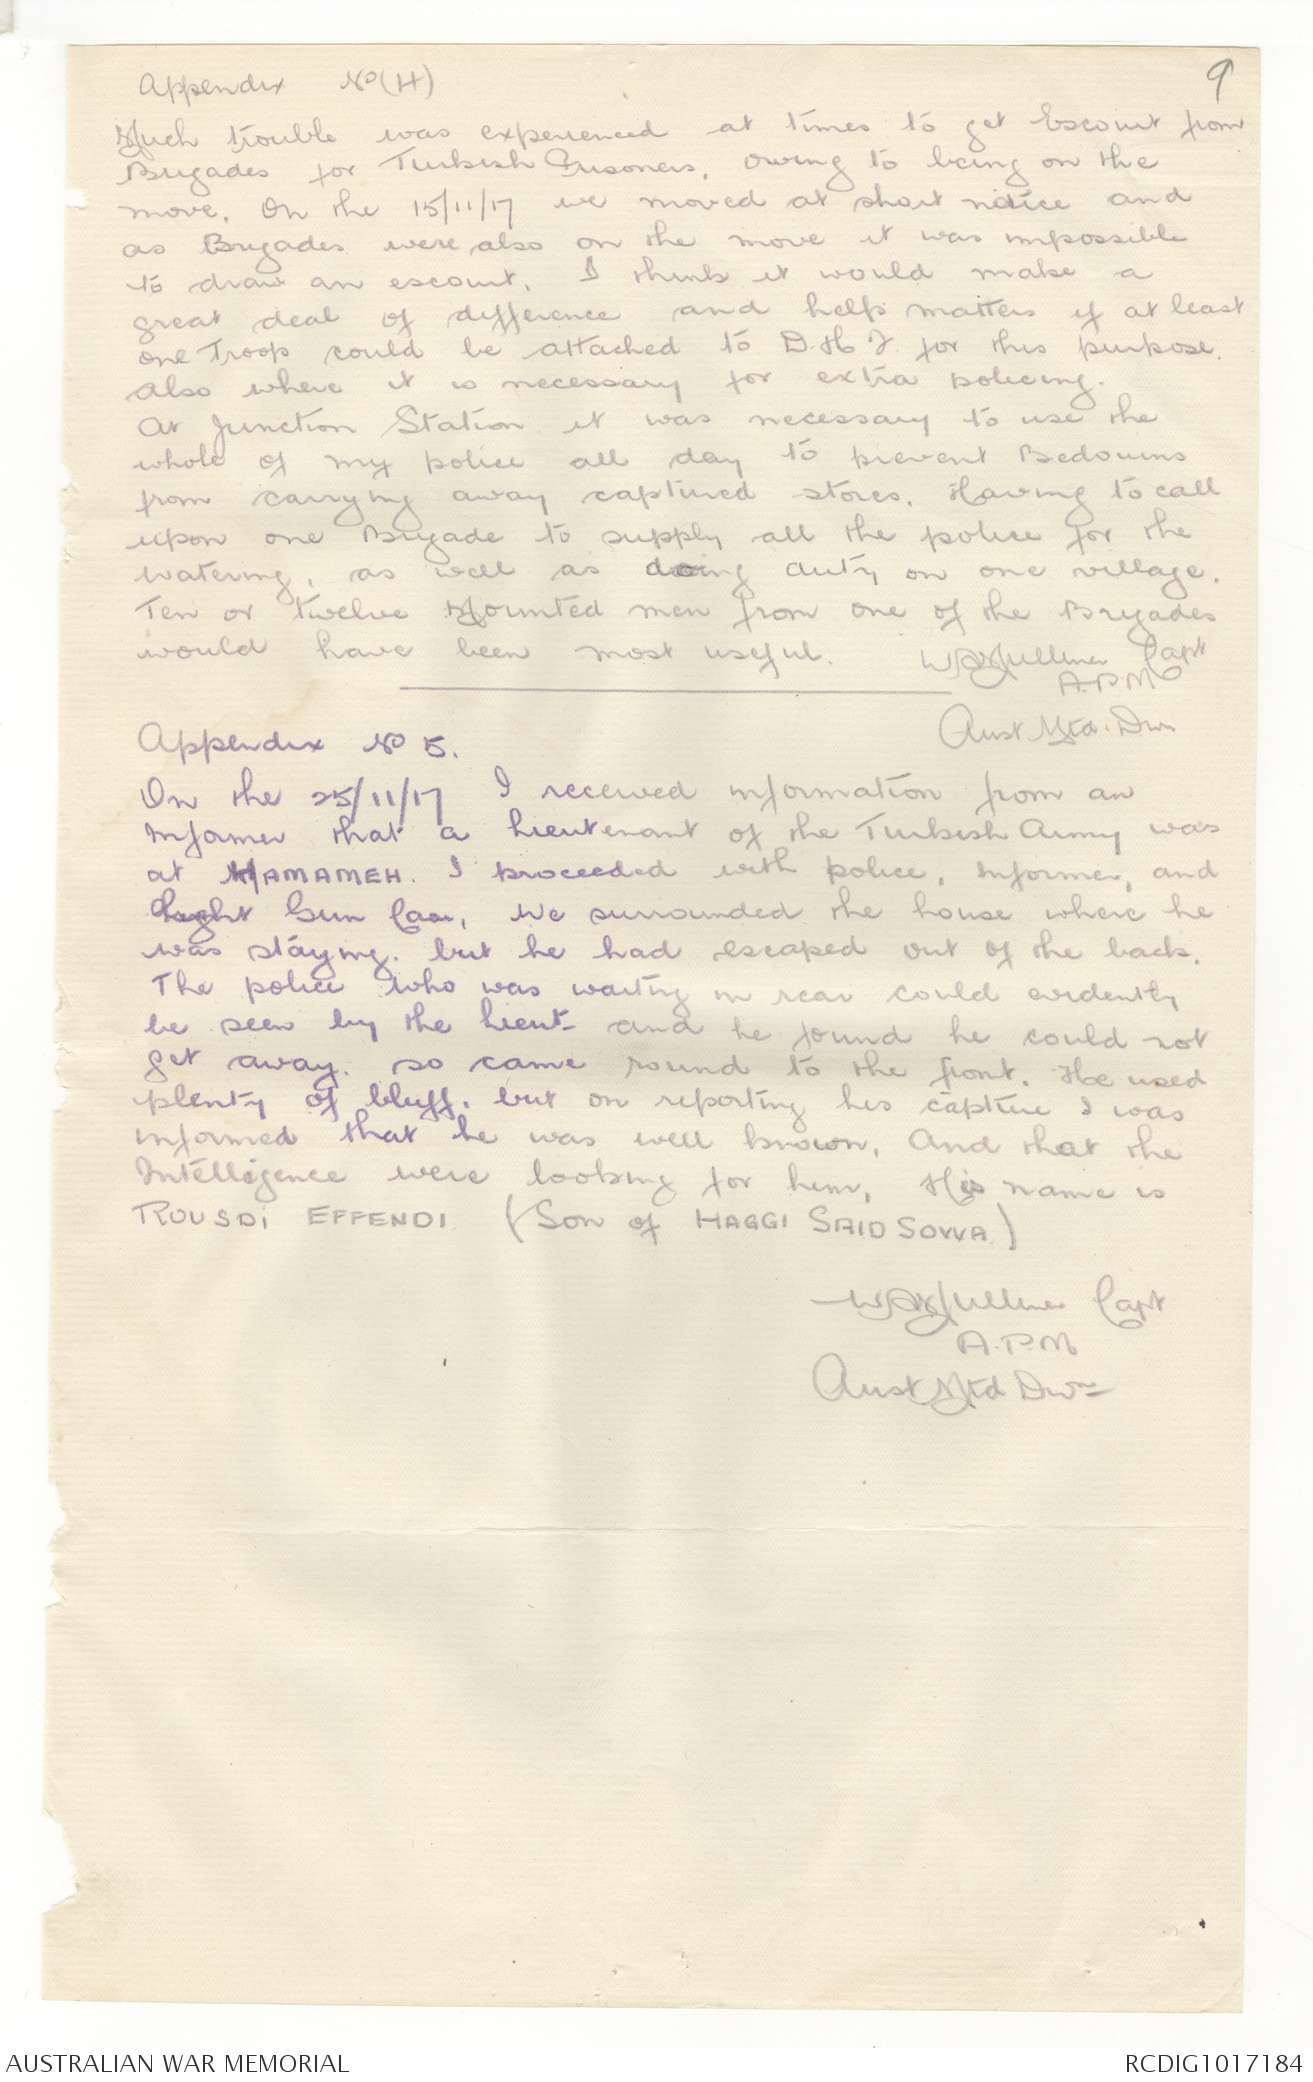 9
Appendix No (H)
Much trouble was experienced at times to get Escourt from
Brigades for Turkish Prisoners, owing to being on the
move. On the 15/11/17 we moved at short notice and
as Brigades were also on the move it was impossible
to draw an escourt. I think it would make a
great deal of difference and help matters if at least
one Troop could be attached to D.H.Q. for this purpose.
Also where it is necessary for extra policing.
At Junction Station it was necessary to use the
whole of my police all day to prevent Bedouins
from carrying away captured stores. Having to call
upon one Brigade to supply all the police for the
watering, as well as doing duty on one village.
Ten or twelve Mounted men from one of the Brigades
would have been most useful. Capt
A.P.M
Aust Mtd. Divn
Appendix No 5.
On the 25/11/17 I received information from an
Informer that a lieutenant of the Turkish Army was
at HAMAMEH. I proceeded with police, Informer, and
Light Gun Car, We surrounded the house where he
was staying. but he had escaped out of the back.
The police who was waiting in rear could evidently
be seen by the lieut- and he found he could not
get away. so came round to the front. He used
plenty of bluff. but on reporting his capture I was
informed that he was well known, And that the
Intelligence were looking for him, His name is
ROUSDI EFFENDI (Son of HAGGI SAID SOWA)
Capt
A.P.M
Aust Mtd Divn
AUSTRALIAN WAR MEMORIAL
RCDIG1017184